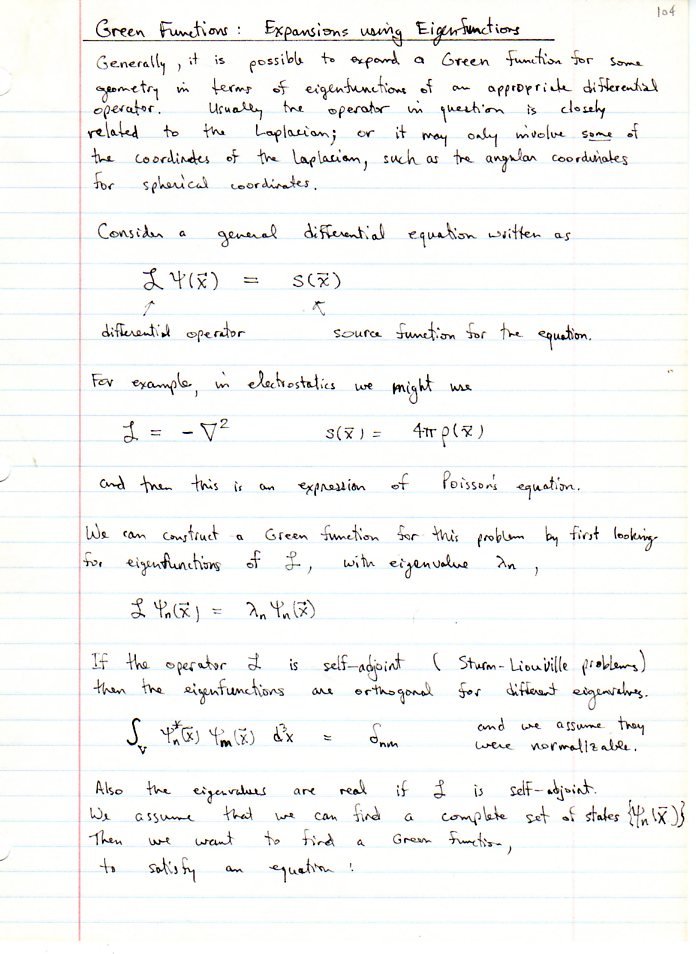 104
Green Functions: Expansions using Eigenfunctions
Generally, it is possible to expand a Green function for some
geometry in terms of eigenfunctions of an appropriate differential
operator. Usually the operator in question is closely
related to the Laplacian; or it may only involve some of
the coordinates of the Laplacian, such as the angular coordinates
for spherical coordinates.
Consider a general differential equation written as
ℒ Ψ(x⃗) = s(x⃗)
↑ ↖
differential operator source function for the equation.
For example, in electrostatics we might use
ℒ = -∇² s(x⃗) = 4πρ(x⃗)
and then this is an expression of Poisson's equation.
We can construct a Green function for this problem by first looking
for eigenfunctions of ℒ, with eigenvalue λn,
ℒ Ψn(x⃗) = λn Ψn(x⃗)
If the operator ℒ is self-adjoint (Sturm-Liouville problems)
then the eigenfunctions are orthogonal for different eigenvalues.
∫V Ψn*(x⃗) Ψm(x⃗) d³x = δnm and we assume they
were normalizable.
Also the eigenvalues are real if ℒ is self-adjoint.
We assume that we can find a complete set of states {Ψn(x⃗)}
Then we want to find a Green function,
to satisfy an equation: